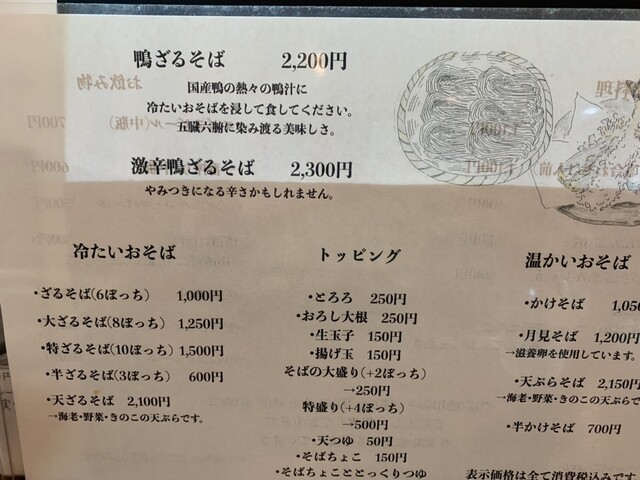 鴨ざるそば 2,200円
国産鴨の熱々の鴨汁に
冷たいおそばを浸して食してください。
五臓六腑に染み渡る美味しさ。
激辛鴨ざるそば 2,300円
やみつきになる辛さかもしれません。
冷たいおそば
・ざるそば(6ぼっち) 1,000円
・大ざるそば(8ぼっち) 1,250円
・特ざるそば(10ぼっち) 1,500円
・半ざるそば(3ぼっち) 600円
・天ざるそば 2,100円
→海老・野菜・きのこの天ぷらです。
トッピング
・とろろ 250円
・おろし大根 250円
・生玉子 150円
・揚げ玉 150円
そばの大盛り(+2ぼっち)
→250円
特盛り(+4ぼっち)
→500円
・天つゆ 50円
・そばちょこ 150円
・そばちょこととっくりつゆ
温かいおそば
・かけそば 1,050
・月見そば 1,200円
→滋養卵を使用しています。
・天ぷらそば 2,150円
→海老・野菜・きのこの天ぷらです
・半かけそば 700円
表示価格は全て消費税込みです
お飲み物
料理